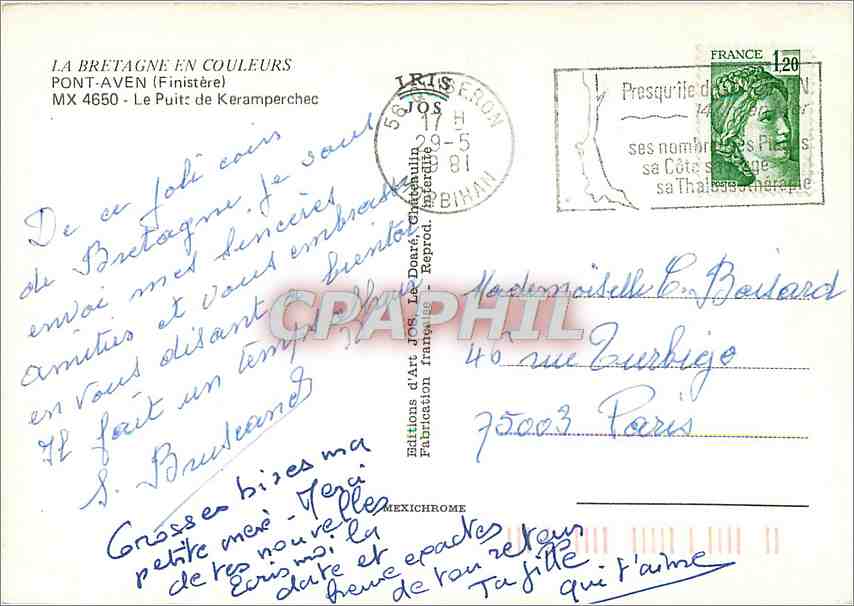 LA BRETAGNE EN COULEURS
PONT-AVEN (Finistère)
MX 4650 - Le Puits de Keramperchec
IRIS
JOS
56 QUIBERON
17 H
29-5
1981
MORBIHAN
Presqu'ile de QUIBERON
ses nombreuses Plages
sa Côte sauvage
sa Thalassothérapie
FRANCE 1,20
De ce joli coin
de Bretagne je vous
envoi mes sincères
amitiés et vous embrasse
en vous disant à bientôt
Il fait un temps
S.
Grosses bises ma
petite mère. Merci
de tes nouvelles
Ecris moi la
date et
heure exactes
de ton retour
Ta fille
qui t'aime
Editions d'Art JOS, Le Doaré, Châteaulin
Fabrication française - Reprod. interdite
MEXICHROME
CPAPHIL
Mademoiselle C. Boisard
46 rue Turbigo
75003 Paris